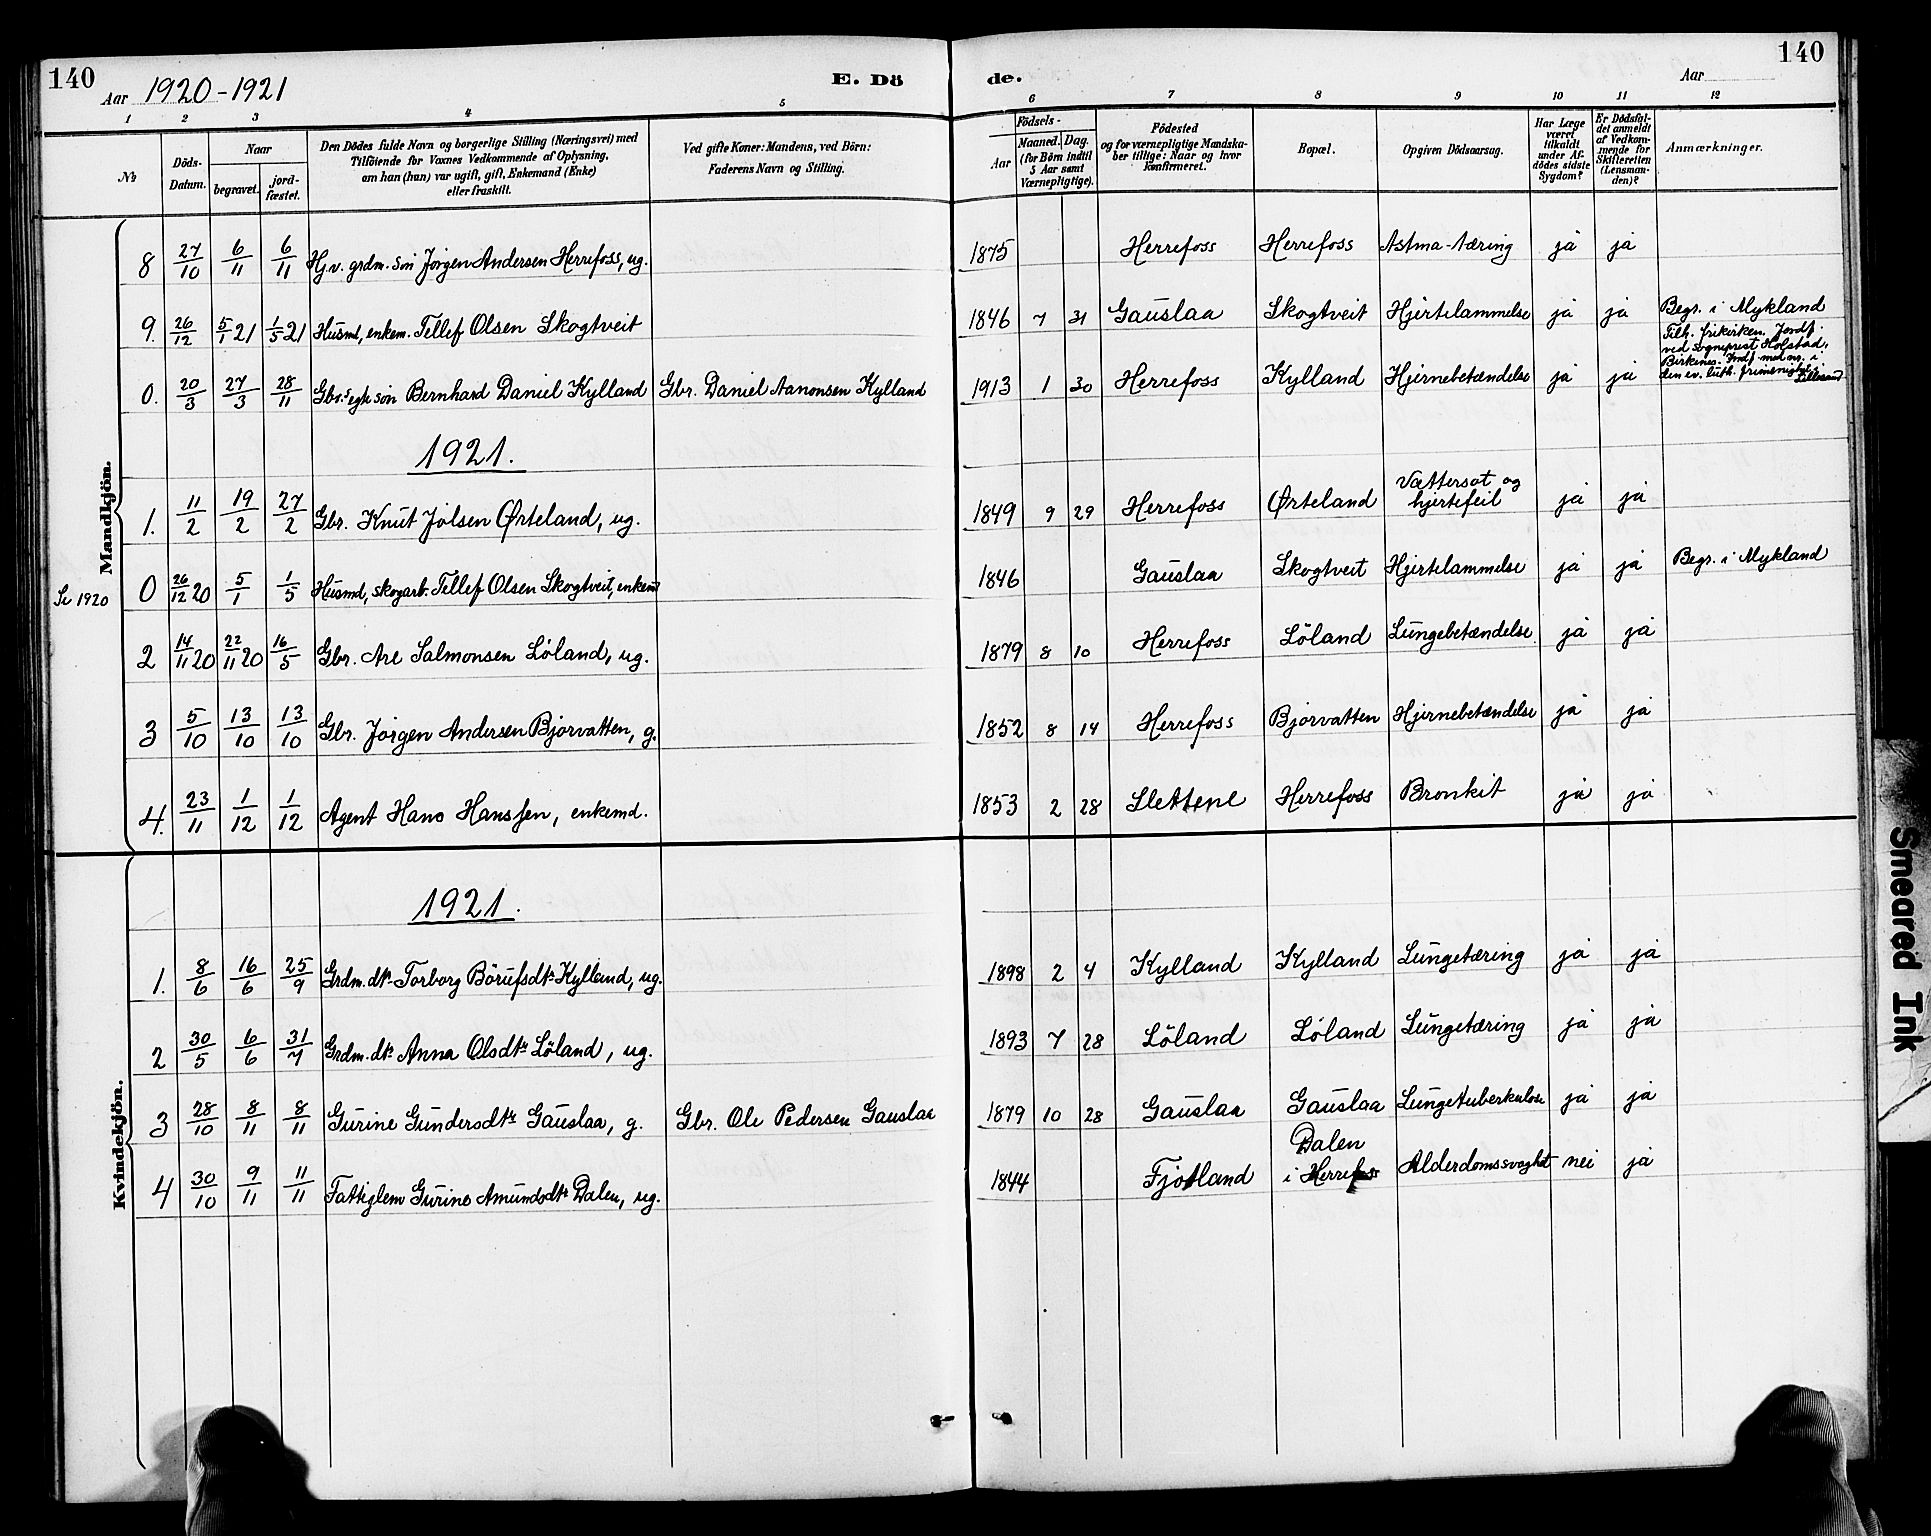 140
Aar 1920-1921
E. Dö
de.
Aar
140
1 2 3 4 5 6 7 8 9 10 11 12
№
Döds-Datum.
Naar
begravet.
jord-fæstet.
Den Dödes fulde Navn og borgerlige Stilling (Næringsvei) med
Tilföiende for Voxnes Vedkommende af Oplysning,
om han (hun) var ugift, gift, Enkemand (Enke)
eller fraskilt.
Ved gifte Koner: Mandens, ved Börn:
Faderens Navn og Stilling.
Födsels-
Aar
Maaned. Dag.
(for Börn indtil
5 Aar samt
Værnepligtige).
Födested
og for værnepligtige Mandska-
ber tillige: Naar og hvor
konfirmeret.
Bopæl.
Opgiven Dödsaarsag.
Har Læge
været
tilkaldt
under Af-
dödes sidste
Sygdom?
Er Dödsfal-
det anmeldt
af Vedkom-
mende for
Skifteretten
(Lensman-
den)?
Anmærkninger.
Mandkjön.
8 27/10 6/11 6/11 Hj.v. grdm. sön Jörgen Andersen Herrefoss, ug. 1875 Herrefoss Herrefoss Astma-tæring ja ja
9. 26/12 5/1 21 1/5 21 Husmd, enkem. Tellef Olsen Skogtveit 1846 7 31 Gauslaa Skogtveit Hjertelammelse ja ja Begr. i Mykland
0. 20/3 27/3 28/11 Gbr.s egte sön Bernhard Daniel Kylland Gbr. Daniel Aanonsen Kylland 1913 1 30 Herrefoss Kylland Hjernebetændelse ja ja
Tilh. frikirken. Jordf.
ved sogneprest Holstad,
Birkenes. Indf. med nr. i
den ev. luth. frimenighet i
Lillesand
1921.
1. 11/2 19/2 27/2 Gbr. Knut Jolsen Ørteland, ug. 1849 9 29 Herrefoss Ørteland Vattersot og
hjertefeil ja ja
Se 1920 0 26/12 20 5/1 1/5 Husmd, skogarb. Tellef Olsen Skogtveit, enkemd 1846 Gauslaa Skogtveit Hjertelammelse ja ja Begr. i Mykland
2 14/11 20 22/11 20 16/5 Gbr. Are Salmonsen Löland, ug. 1879 8 10 Herrefoss Löland Lungebetændelse ja ja
3 5/10 13/10 13/10 Gbr. Jörgen Andersen Bjorvatten, g. 1852 8 14 Herrefoss Bjorvatten Hjernebetændelse ja ja
4. 23/11 1/12 1/12 Agent Hans Hanssen, enkemd. 1853 2 28 Slettene Herrefoss Bronkit ja ja
Kvindekjön.
1921.
1. 8/6 16/6 25/9 Grdm. dtr Torborg Börufsdtr Kylland, ug. 1898 2 4 Kylland Kylland Lungetæring ja ja
2 30/5 6/6 31/7 Grdm. dtr Anna Olsdtr Löland, ug. 1893 7 28 Löland Löland Lungetæring ja ja
3 28/10 8/11 8/11 Gurine Gundersdtr Gauslaa, g. Gbr. Ole Pedersen Gauslaa 1879 10 28 Gauslaa Gauslaa Lungetuberkulose ja ja
4 30/10 9/11 11/11 Fattiglem Gurine Amundsdtr Dalen, ug. 1844 Fjotland Dalen
i Herrefoss Alderdomssvaghet nei ja
Smeared Ink